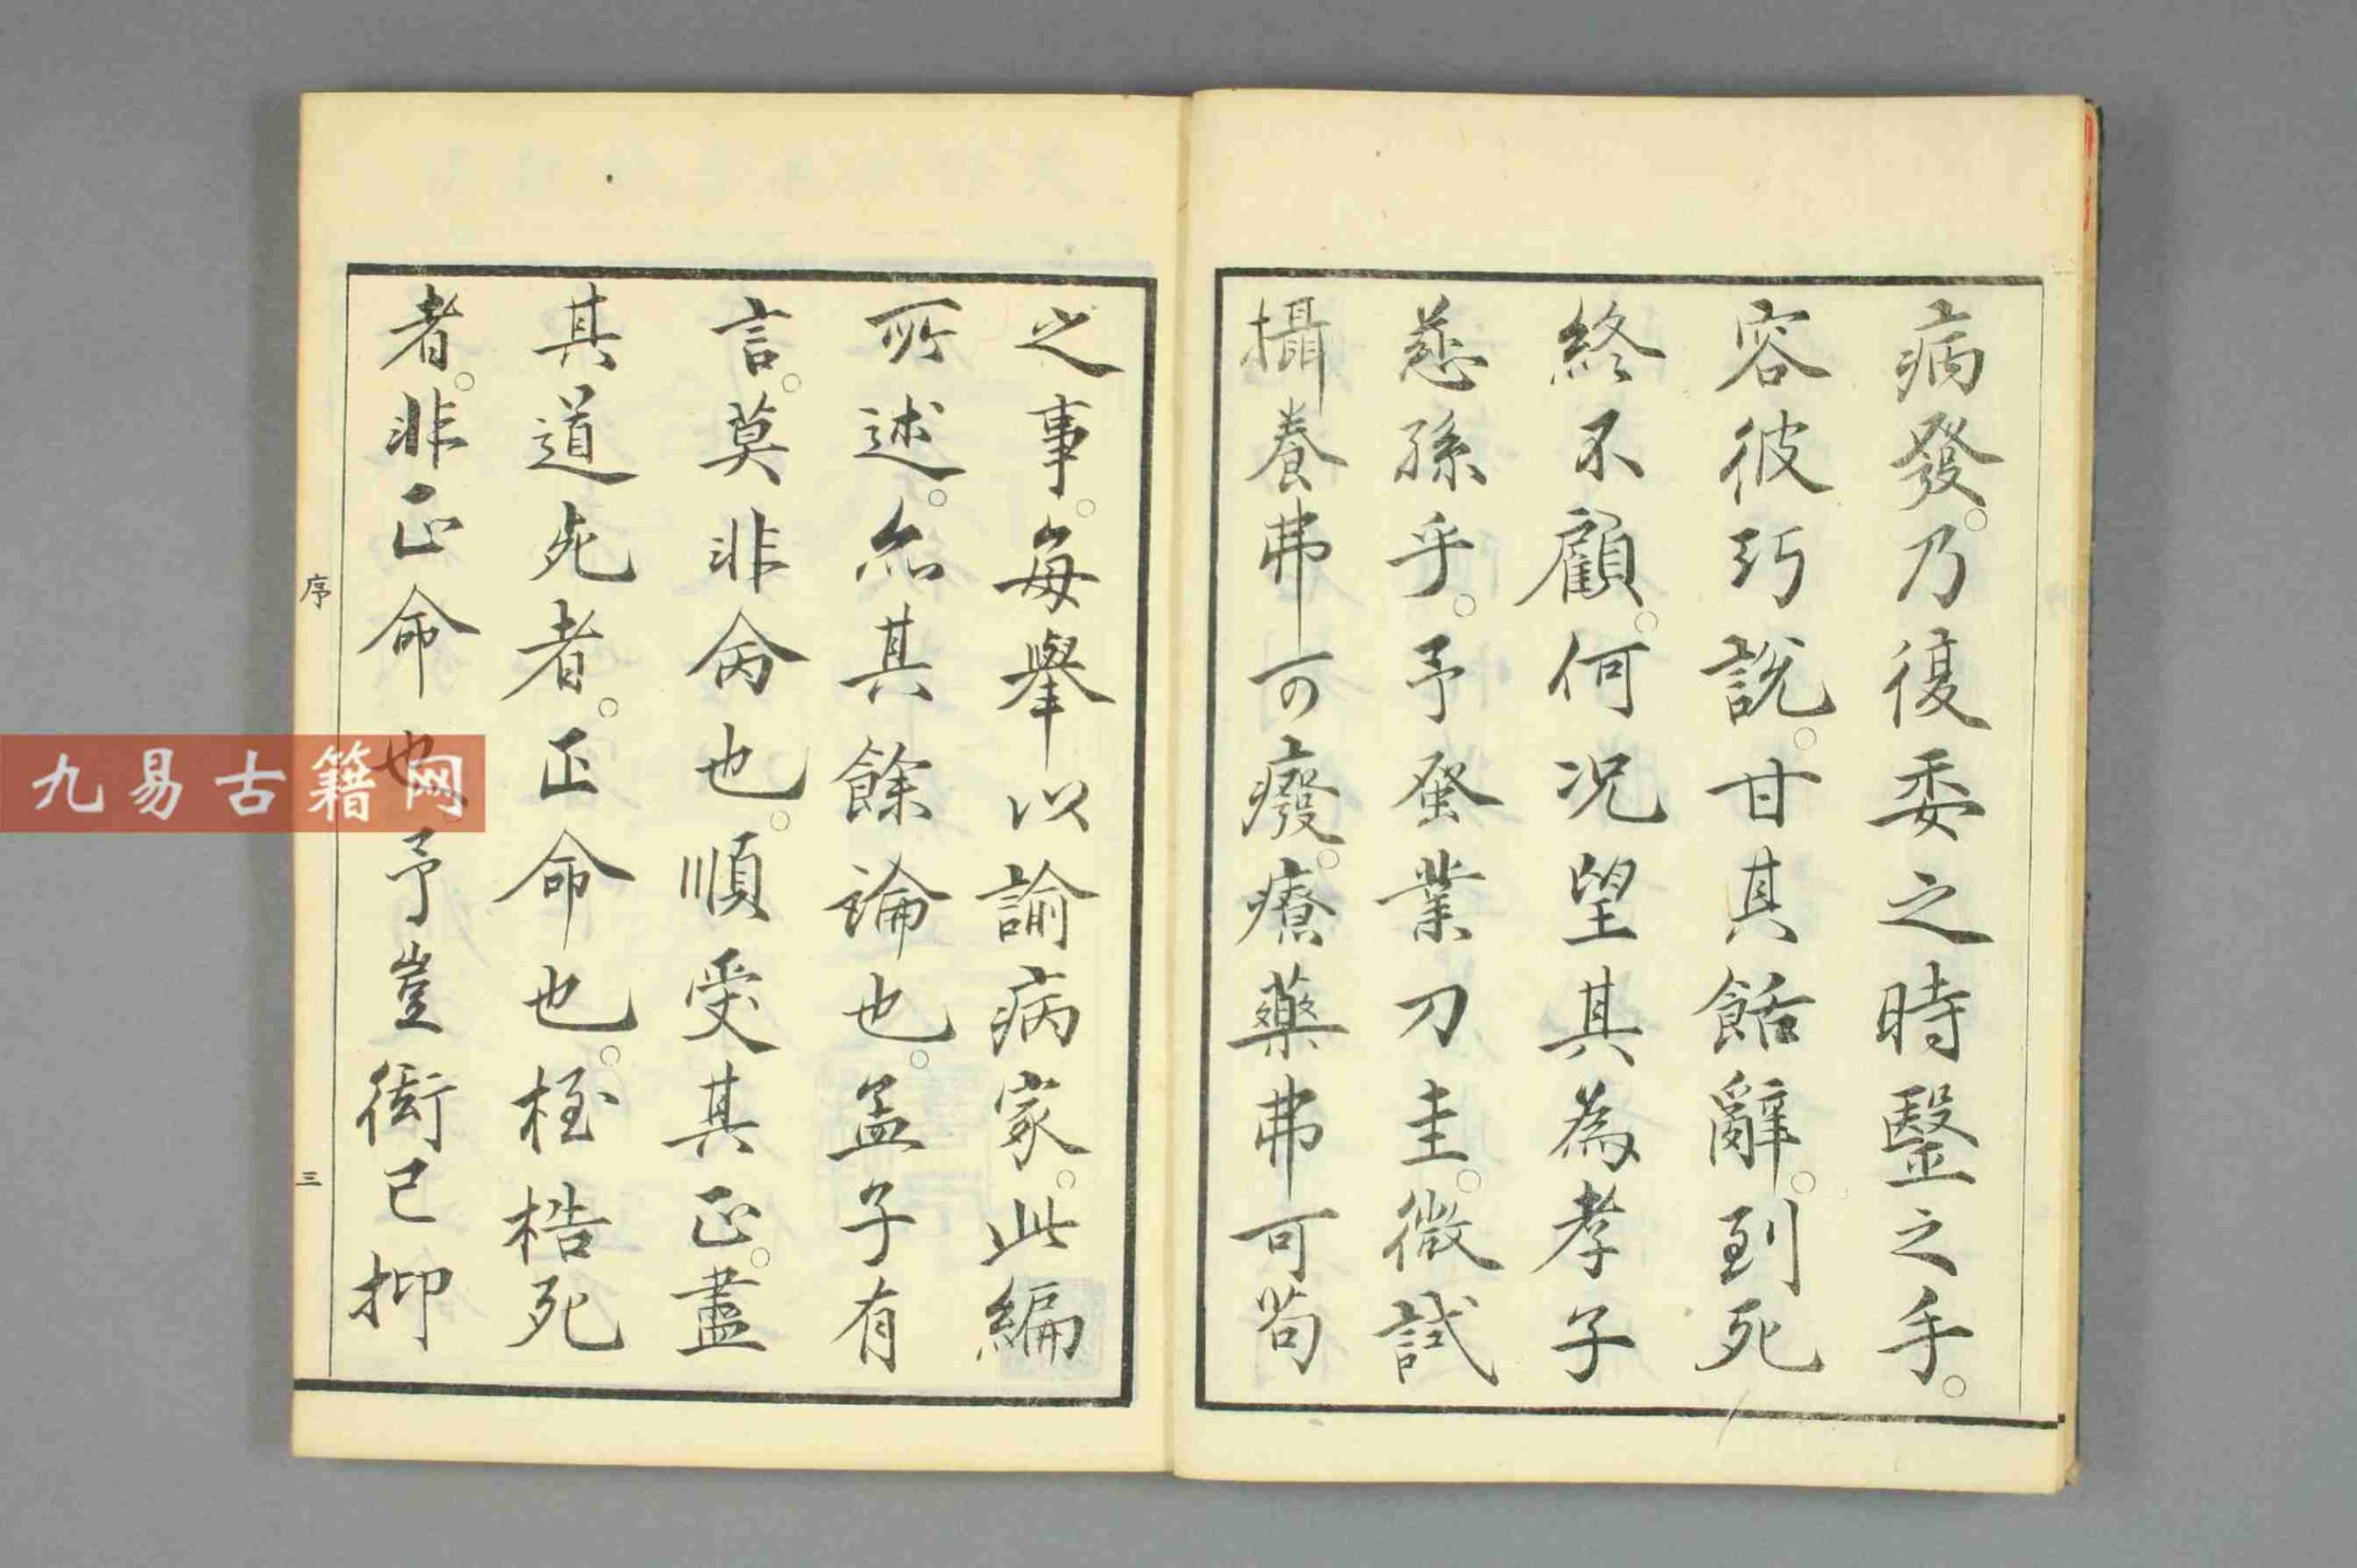 病發。乃復委之時毉之手。
容彼巧説。甘其餂辭。到死
終不顧。何况望其為孝子
慈孫乎。予發業刀圭。微試
攝養弗可癈。療藥弗可苟
之事。每舉以諭病家。此編
所述。尒其餘論也。孟子有
言。莫非命也。順受其正。盡
其道死者。正命也。桎梏死
者。非正命也。予豈衒己抑
序
三
九易古籍网